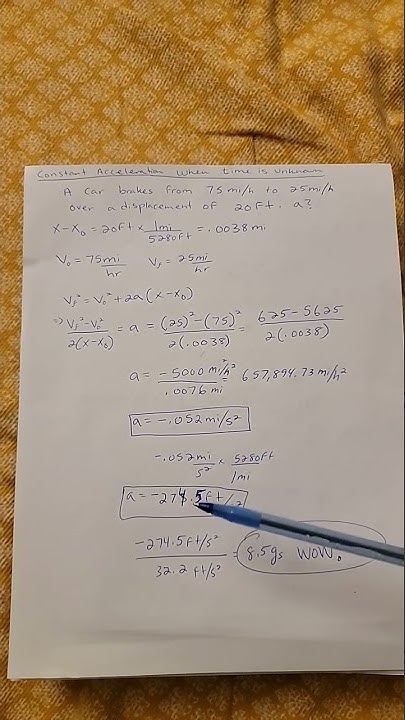 Constant Acceleration when time is unknown
A car brakes from 75 mi/h to 25 mi/h
over a displacement of 20ft. a?
x-x₀ = 20ft × 1mi/5280ft = .0038 mi
V₀ = 75mi/hr   V_f = 25mi/hr
V_f² = V₀² + 2a(x-x₀)
⇒ V_f²-V₀²/2(x-x₀) = a = (25)²-(75)²/2(.0038) = 625-5625/2(.0038)
a = -5000 mi²/h²/.0076 mi = 657,894.73 mi/h²
a = -.052 mi/s²
-.052 mi/s² × 5280ft/1mi
a = -274.5 ft/s²
-274.5 ft/s²/32.2 ft/s² = 8.5gs WOW.